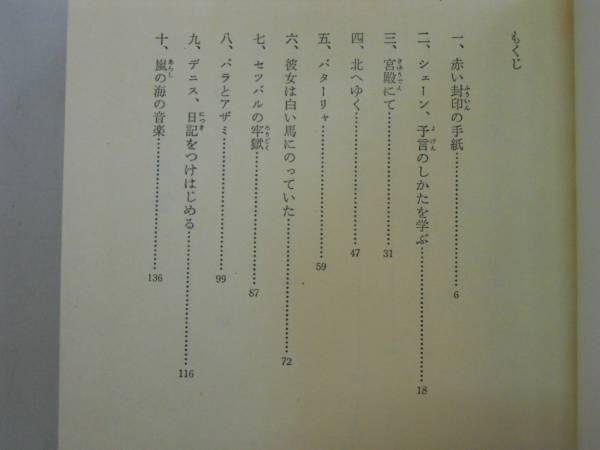 もくじ
一、赤い封印の手紙……6
二、シェーン、予言のしかたを学ぶ……18
三、宮殿にて……31
四、北へゆく……47
五、バターリャ……59
六、彼女は白い馬にのっていた……72
七、セツバルの牢獄……87
八、バラとアザミ……99
九、デニス、日記をつけはじめる……116
十、嵐の海の音楽……136